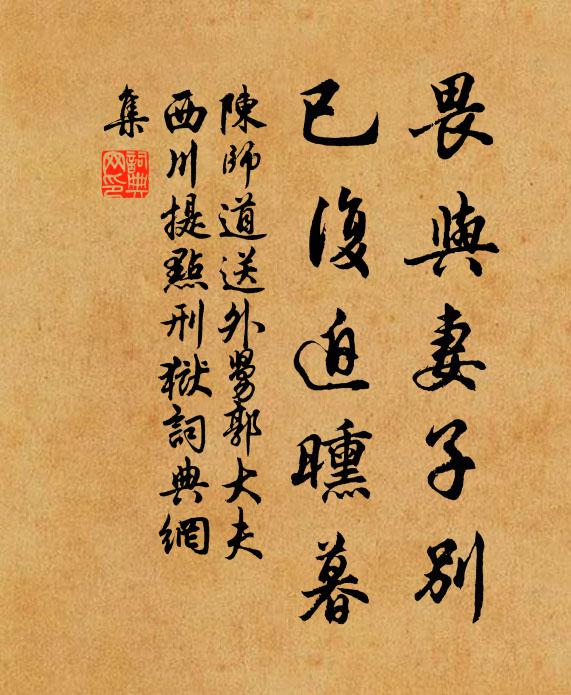 畏與妻子別
已復迫曛暮
陳師道送外舅郭大夫
西川提點刑獄詞典網
集
詞典
网印